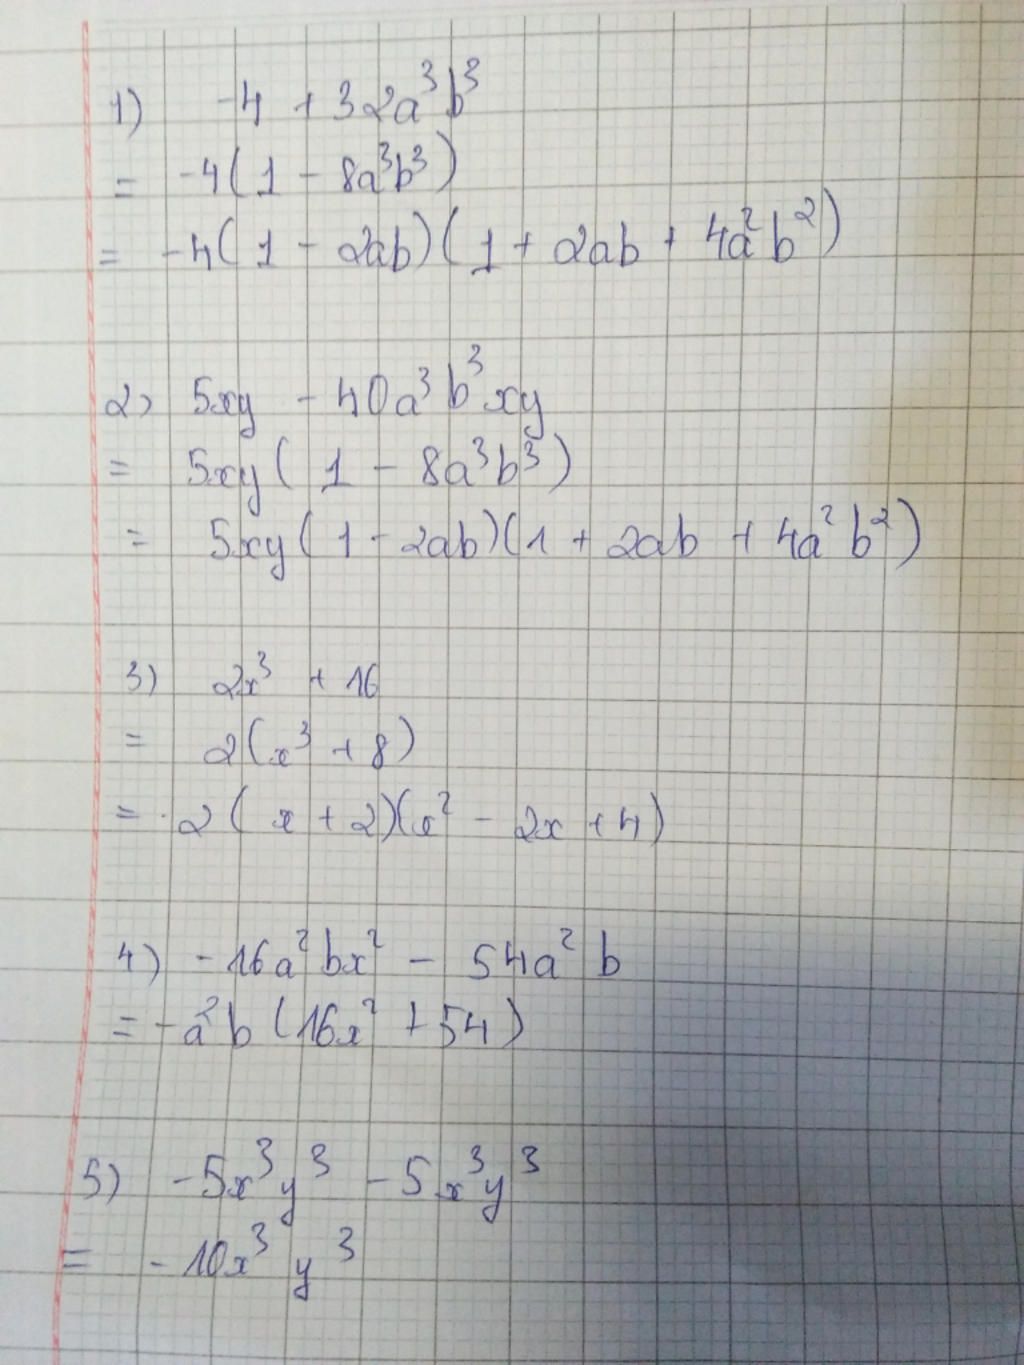 1) -4 + 32a³b³
= -4(1 - 8a³b³)
= -4(1 - 2ab)(1 + 2ab + 4a²b²)
2) 5xy - 40a³b³xy
= 5xy(1 - 8a³b³)
= 5xy(1 - 2ab)(1 + 2ab + 4a²b²)
3) 2x³ + 16
= 2(x³ + 8)
= 2(x + 2)(x² - 2x + 4)
4) -16a²bx² - 54a²b
= -a²b(16x² + 54)
5) -5x³y³ - 5x³y³
= -10x³y³